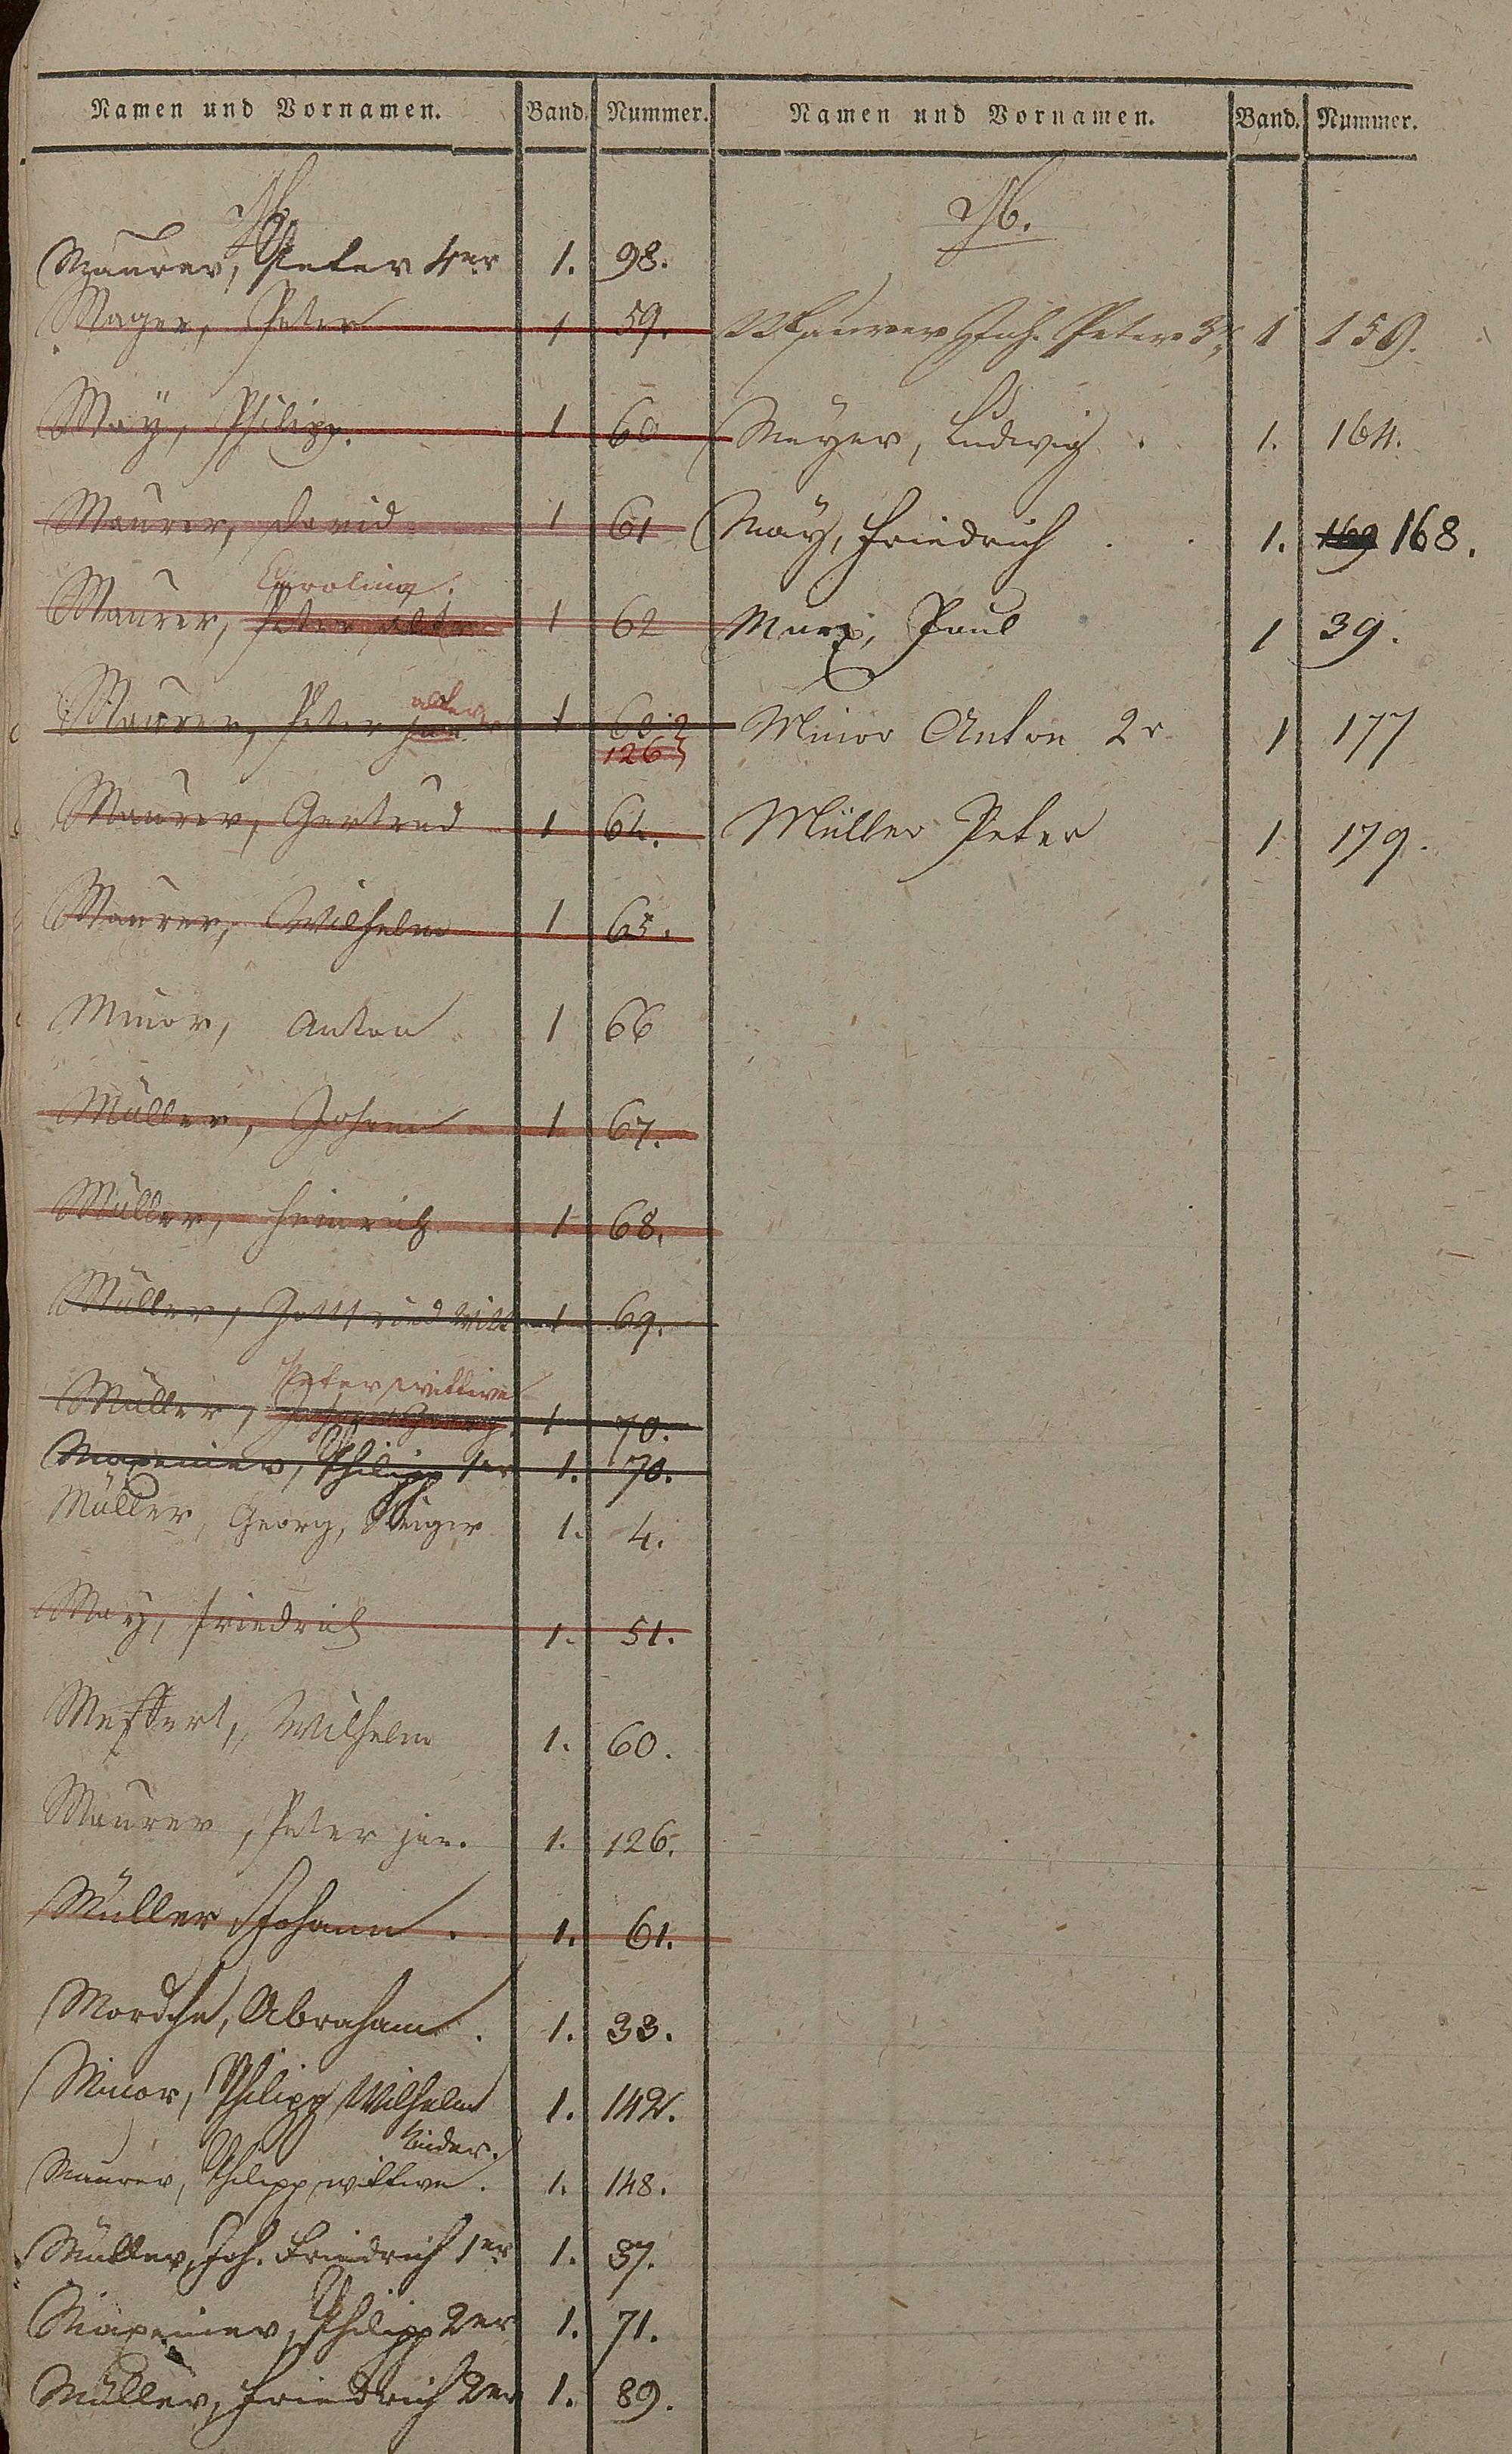 Namen und Vornamen. Band. Nummer.
M.
Maurer, Peter 4er 1. 98.
Mager, Peter 1 59.
May, Philipp. 1 60
Maurer, David 1 61
Caroline.
Maurer, Peter alt 1 62
alter
Maurer, Peter jun. 1
126
Maurer, Gertrud 1 64.
Maurer, Wilhelm 1 65.
Minor, Anton 1 66
Müller, Johann 1 67.
Müller, Heinrich 1 68.
Müller, Gottfried Witt 1 69.
Peter wittwe
Müller, Georg. 1 70.
Maxeiner, Philipp 1er 1. 70.
Müller, Georg, Steiger 1. 4.
May, Friedrich 1. 51.
Meffert, Wilhelm 1. 60.
Maurer, Peter jun. 1. 126.
Müller, Johann. 1. 61.
Mordche, Abraham. 1. 33.
Minor, Philipp Wilhelm 1. 142.
Kinder.
Maurer, Philipp wittwe. 1. 148.
Müller, Joh. Friedrich 1er 1. 37.
Maxeiner, Philipp 2er 1. 71.
Müller, Friedrich 2er 1. 89.
Namen und Vornamen. Band. Nummer.
M.
Maurer Joh. Peter 5r 1 159.
Meyer, Ludwig. 1. 164.
May, Friedrich . . 1. 169 168.
Marx, Paul 1 39.
Minor Anton 2r 1 177
Müller Peter 1 179.